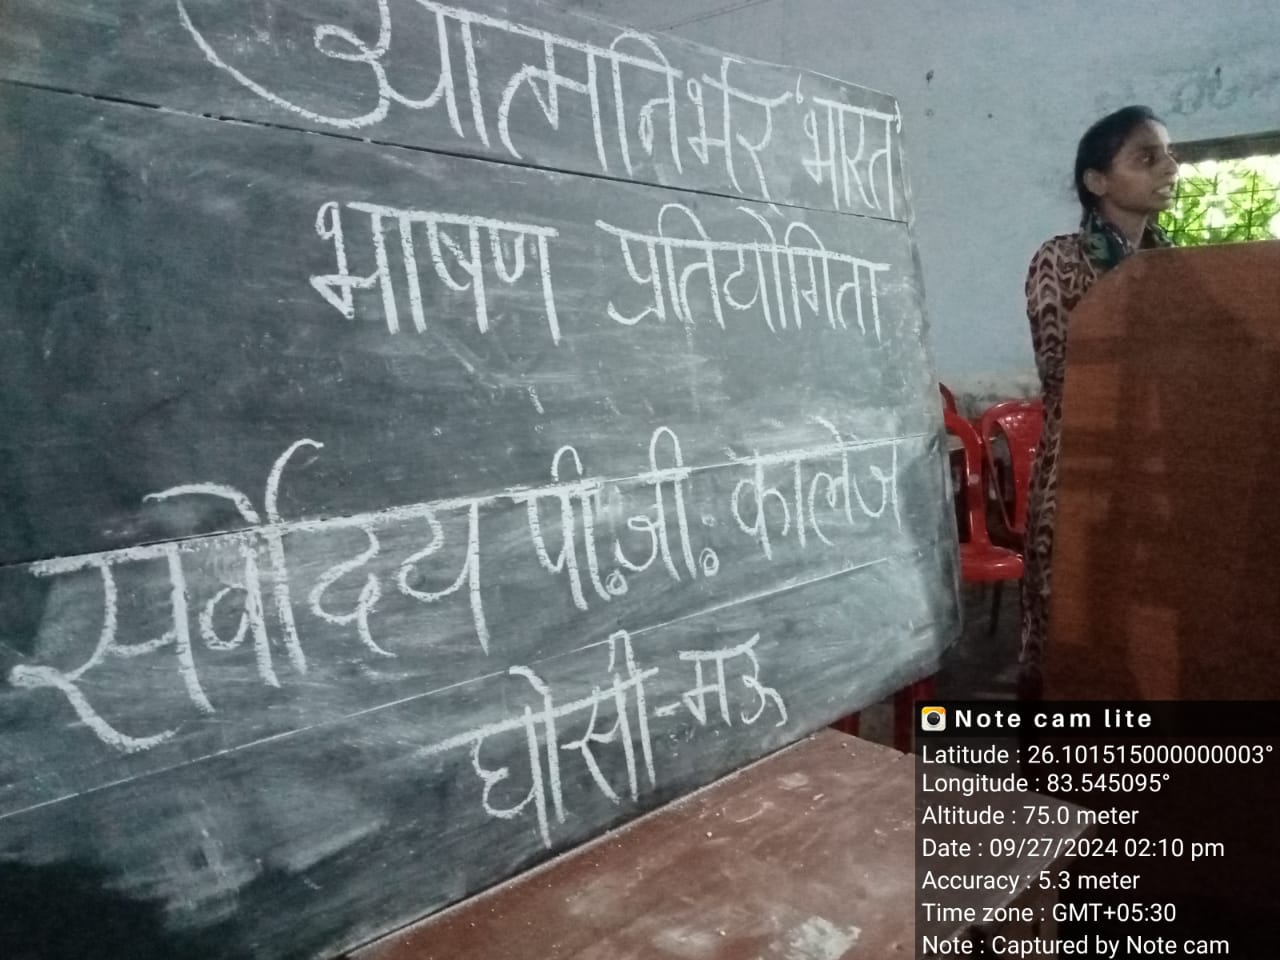 आत्मनिर्भर 'भारत'
भाषण प्रतियोगिता
सर्वोदय पी.जी. कालेज
घोसी-मऊ
Note cam lite
Latitude : 26.101515000000003°
Longitude : 83.545095°
Altitude : 75.0 meter
Date : 09/27/2024 02:10 pm
Accuracy : 5.3 meter
Time zone : GMT+05:30
Note : Captured by Note cam